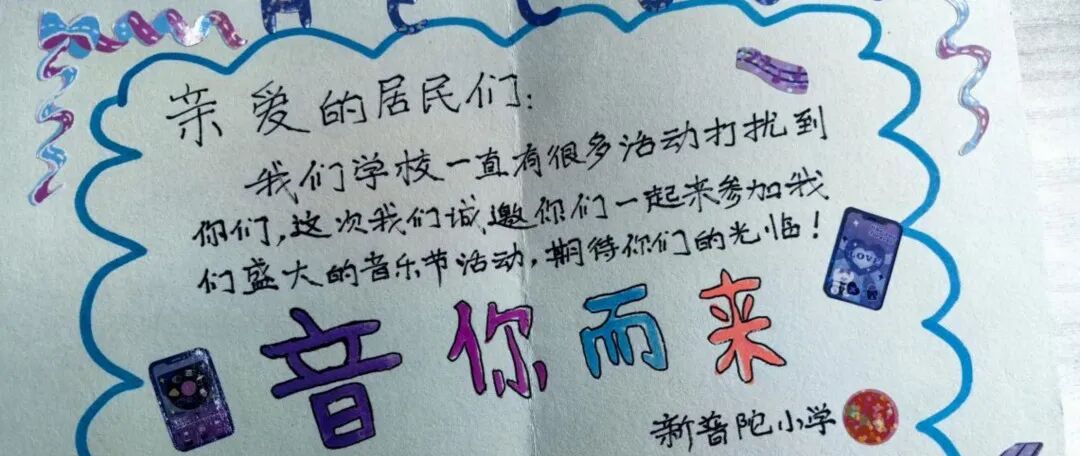 亲爱的居民们:
我们学校一直有很多活动打扰到
你们,这次我们诚邀你们一起来参加我
们盛大的音乐节活动,期待你们的光临!
LOVE
音你而来
新普陀小学